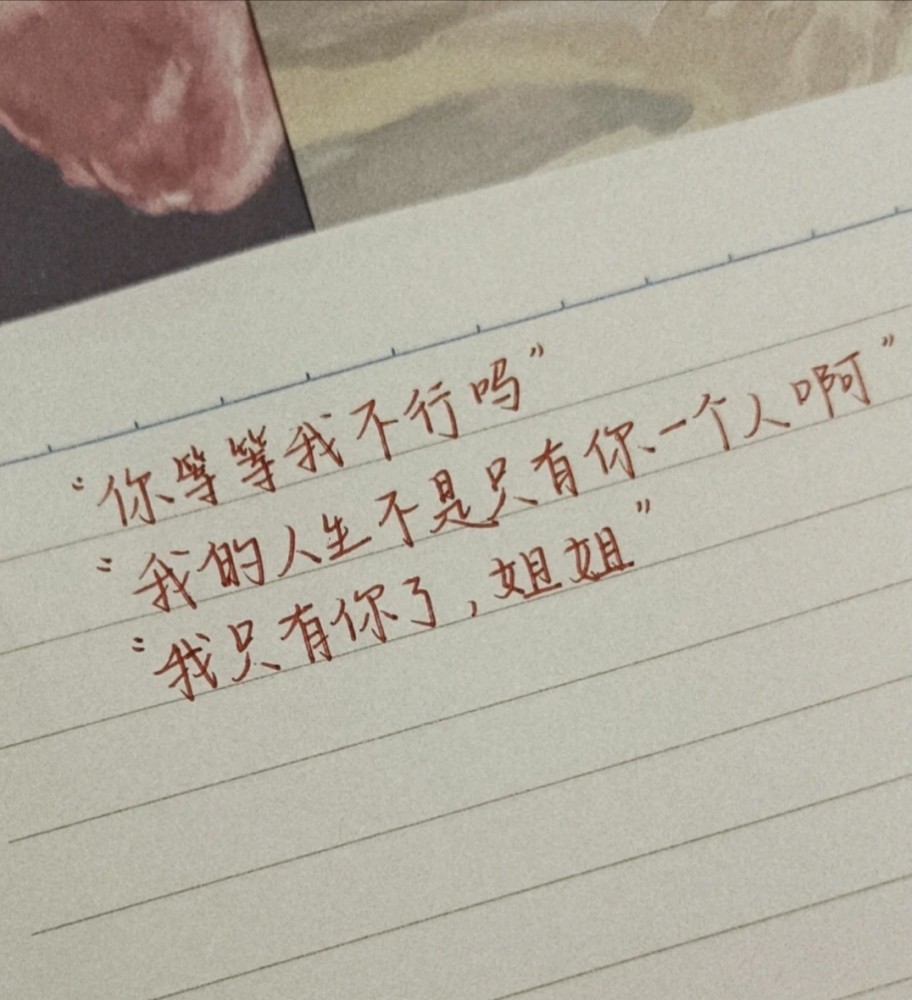 “你等等我不行吗”
“我的人生不是只有你一个人啊”
“我只有你了，姐姐”